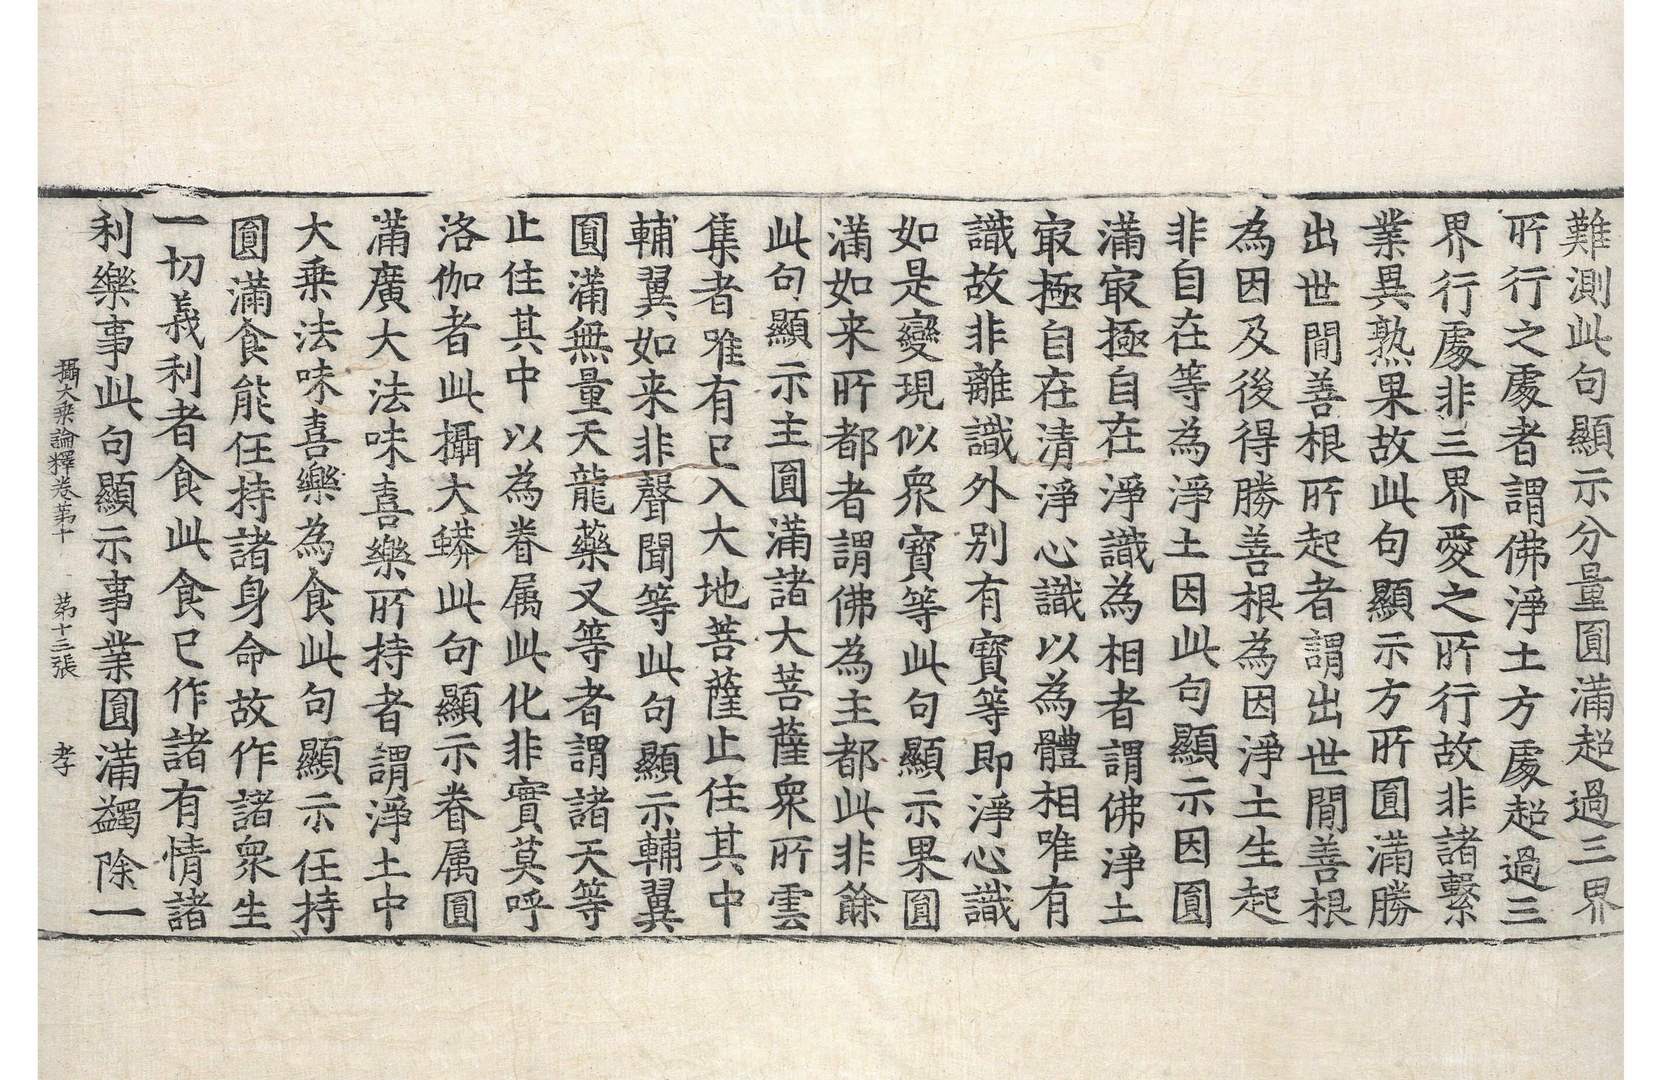 難測此句顯示分量圓滿超過三界
所行之處者謂佛淨土方處超過三
界行處非三界愛之所行故非諸繫
業異熟果故此句顯示方所圓滿勝
出世閒善根所起者謂出世閒善根
為因及後得勝善根為因淨土生起
非自在等為淨土因此句顯示因圓
滿㝡極自在淨識為相者謂佛淨土
㝡極自在清淨心識以為體相唯有
識故非離識外別有寶等即淨心識
如是變現似衆寶等此句顯示果圓
滿如来所都者謂佛為主都此非餘
此句顯示主圓滿諸大菩薩衆所雲
集者唯有已入大地菩薩止住其中
輔翼如来非聲聞等此句顯示輔翼
圓滿無量天龍藥叉等者謂諸天等
止住其中以為眷属此化非實莫呼
洛伽者此攝大蟒此句顯示眷属圓
滿廣大法味喜樂所持者謂淨土中
大乗法味喜樂為食此句顯示任持
圓滿食能任持諸身命故作諸衆生
一切義利者食此食已作諸有情諸
利樂事此句顯示事業圓滿蠲除一
攝大乗論釋卷第十 第十三張 孝